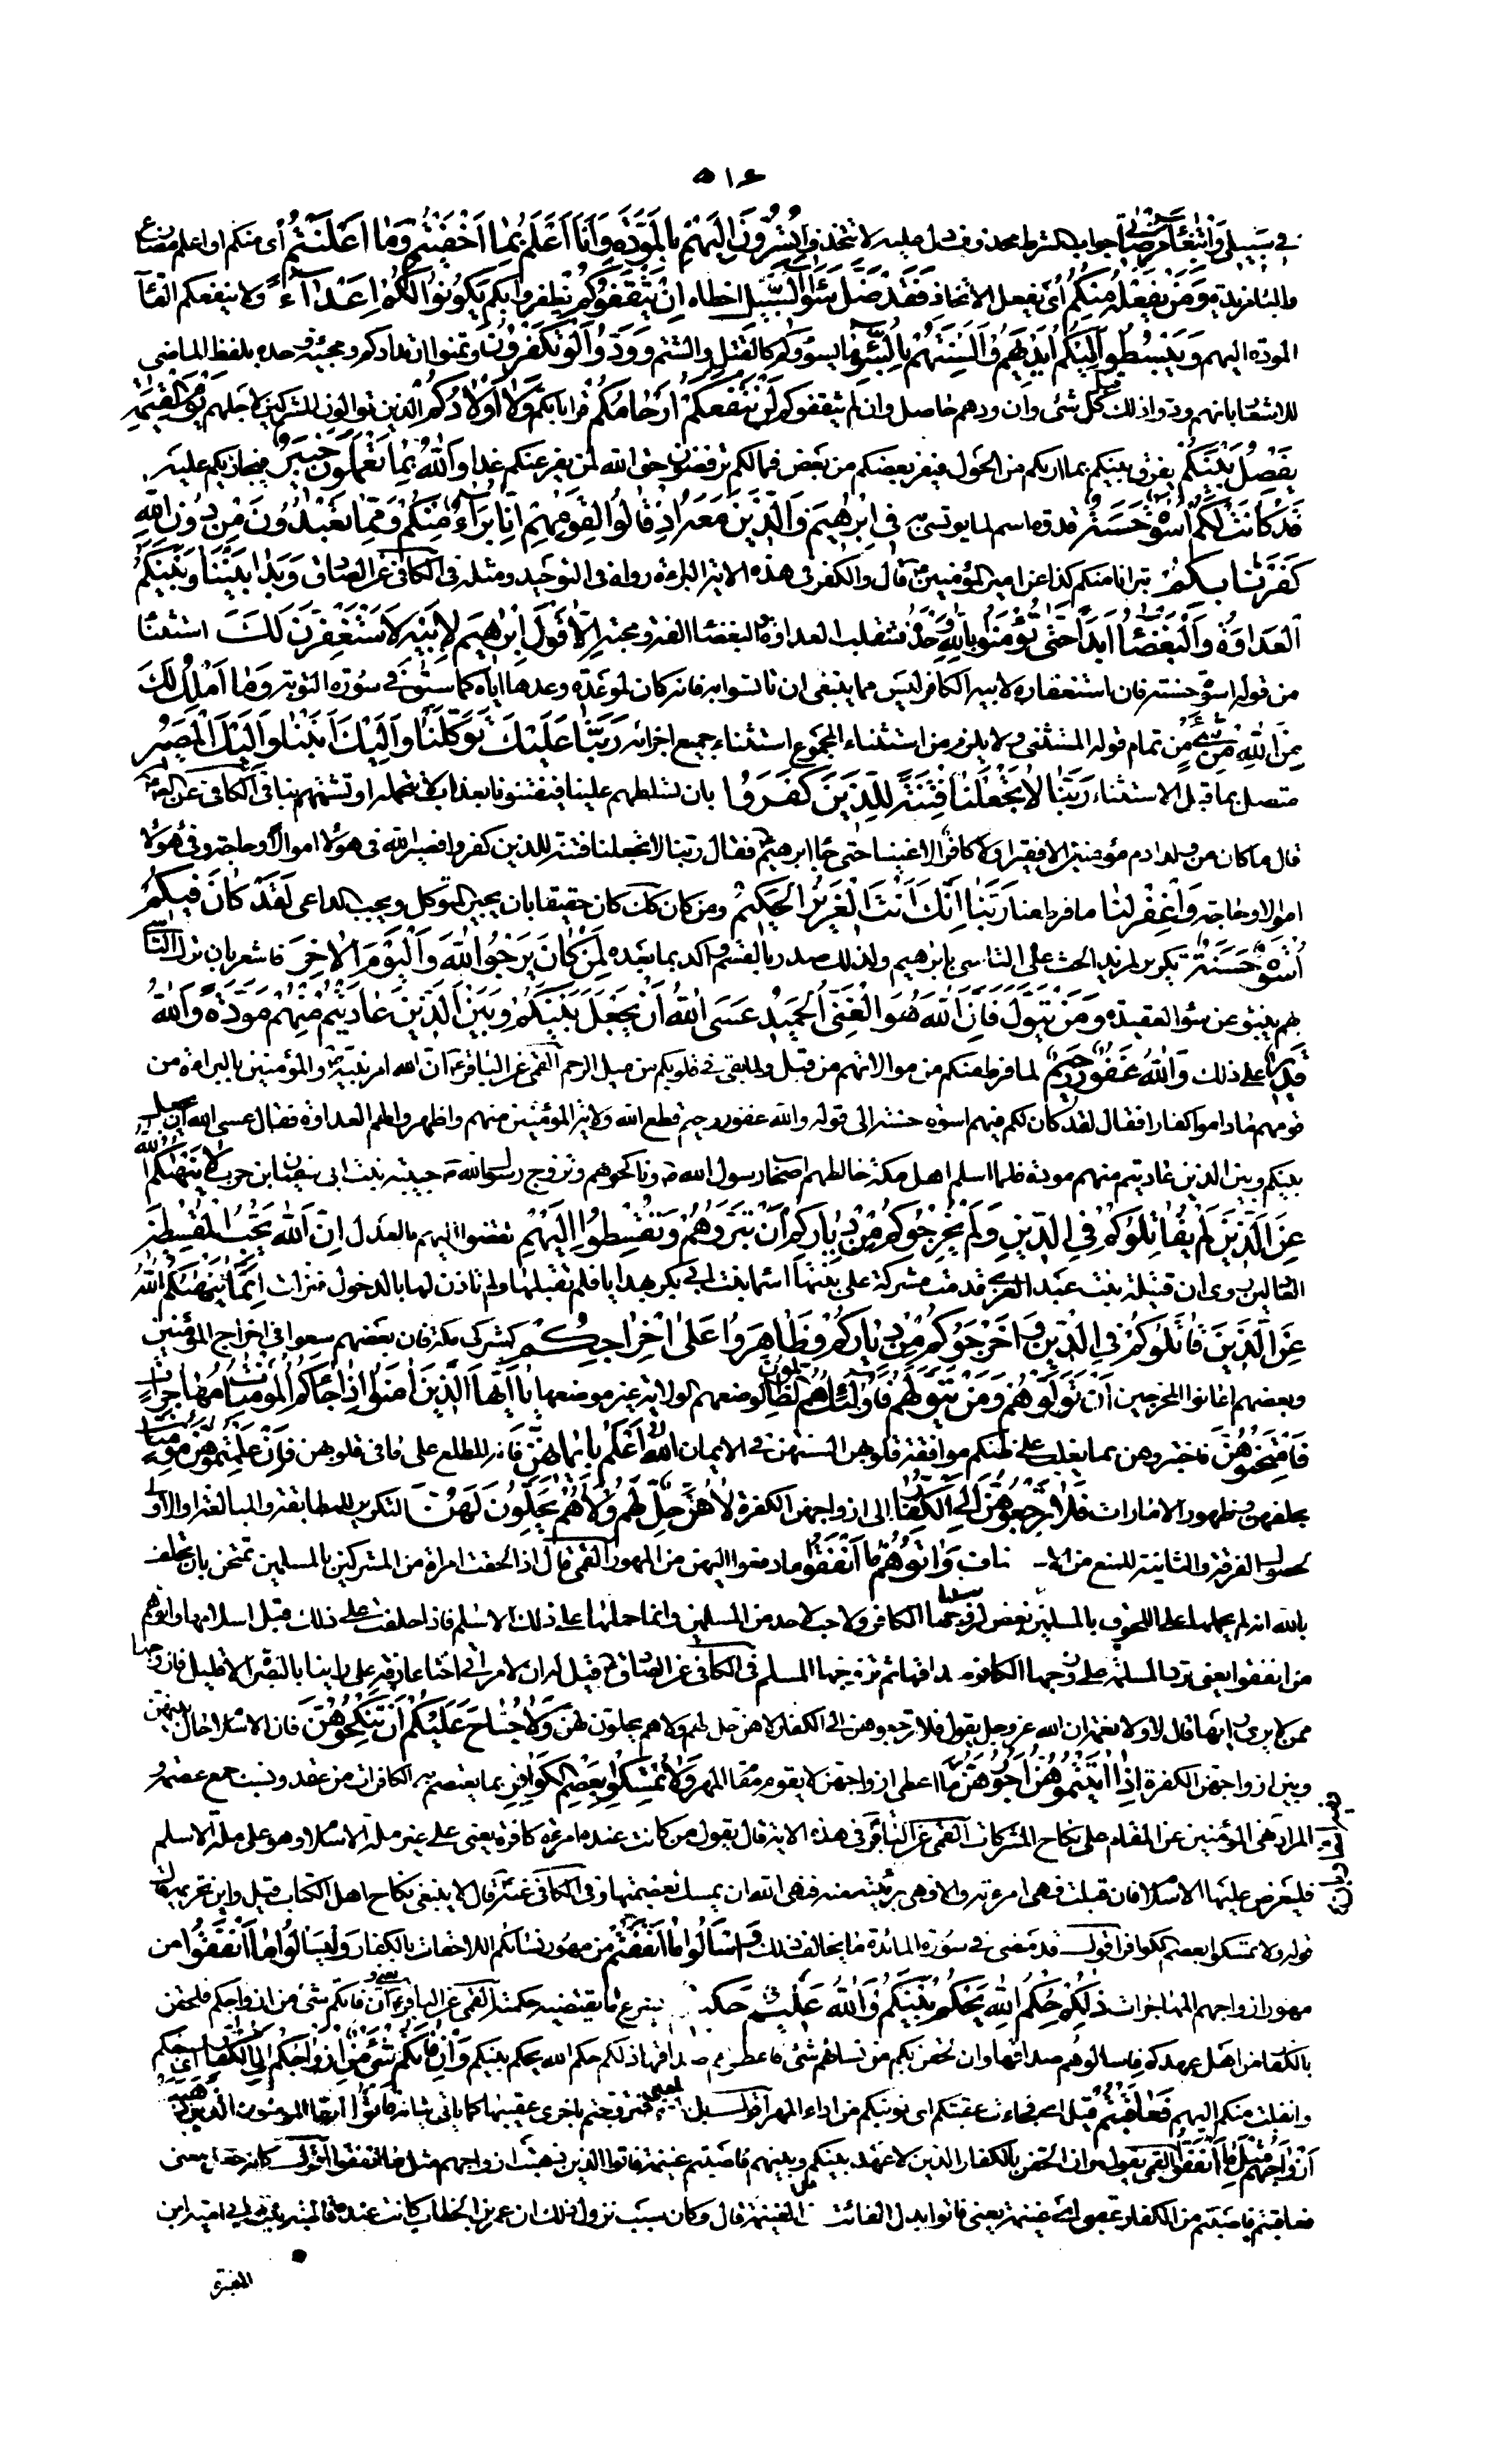 ٥١٤
في سَبِيلِي وَابْتِغَاءَ مَرْضَاتِي جواب الشرط محذوف دل عليه لا تتخذوا تُسِرُّونَ إِلَيْهِمْ بِالْمَوَدَّةِ وَأَنَا أَعْلَمُ بِمَا أَخْفَيْتُمْ وَمَا أَعْلَنْتُمْ أي منكم او اعلم مضارع
والباء مزيدة وَمَنْ يَفْعَلْهُ مِنْكُمْ أي يفعل الاتخاذ فَقَدْ ضَلَّ سَوَاءَ السَّبِيلِ اخطاه إِنْ يَثْقَفُوكُمْ يظفروا بكم يَكُونُوا لَكُمْ أَعْدَاءً ولا ينفعكم القاء
المودة اليهم وَيَبْسُطُوا إِلَيْكُمْ أَيْدِيَهُمْ وَأَلْسِنَتَهُمْ بِالسُّوءِ ما يسوؤكم كالقتل والشتم وَوَدُّوا لَوْ تَكْفُرُونَ وتمنوا ارتدادكم ومجيئه وحده بلفظ الماضي
للاشعار بانهم ودوا ذلك قبل كل شئ وان ودهم حاصل وان لم يثقفوكم لَنْ تَنْفَعَكُمْ أَرْحَامُكُمْ قراباتكم وَلَا أَوْلَادُكُمْ الذين توالون المشركين لاجلهم يَوْمَ الْقِيَامَةِ
يَفْصِلُ بَيْنَكُمْ يفرق بينكم بما اراكم من الهول فيفر بعضكم من بعض فمالكم ترفضون حق الله لمن يفر عنكم غدا وَاللَّهُ بِمَا تَعْمَلُونَ بَصِيرٌ فيجازيكم عليه
قَدْ كَانَتْ لَكُمْ أُسْوَةٌ حَسَنَةٌ قدوة اسم لما يوتسى به فِي إِبْرَاهِيمَ وَالَّذِينَ مَعَهُ إِذْ قَالُوا لِقَوْمِهِمْ إِنَّا بُرَآءُ مِنْكُمْ وَمِمَّا تَعْبُدُونَ مِنْ دُونِ اللَّهِ
كَفَرْنَا بِكُمْ تبرانا منكم كذا عن امير المؤمنين قال والكفر في هذه الاية البراءة رواه في التوحيد ومثله في الكافي عن الصادق وَبَدَا بَيْنَنَا وَبَيْنَكُمُ
الْعَدَاوَةُ وَالْبَغْضَاءُ أَبَدًا حَتَّى تُؤْمِنُوا بِاللَّهِ وَحْدَهُ فتنقلب العداوة والبغضاء الفة ومحبة إِلَّا قَوْلَ إِبْرَاهِيمَ لِأَبِيهِ لَأَسْتَغْفِرَنَّ لَكَ استثناء
من قوله اسوة حسنة فان استغفاره لابيه الكافر ليس مما ينبغي ان تأتسوا به فانه كان لموعدة وعدها اياه كما سبق في سورة التوبة وَمَا أَمْلِكُ لَكَ
مِنَ اللَّهِ مِنْ شَيْءٍ من تمام قوله المستثنى ولا يلزم من استثناء المجموع استثناء جميع اجزائه رَبَّنَا عَلَيْكَ تَوَكَّلْنَا وَإِلَيْكَ أَنَبْنَا وَإِلَيْكَ الْمَصِيرُ
متصل بما قبل الاستثناء رَبَّنَا لَا تَجْعَلْنَا فِتْنَةً لِلَّذِينَ كَفَرُوا بان تسلطهم علينا فيفتنونا بعذاب لا نتحمله او تشمتهم بنا في الكافي عن الصادق
قال ما كان من ولد ادم مؤمن الا فقيرا ولا كافر الا غنيا حتى جاء ابرهيم فقال ربنا لا تجعلنا فتنة للذين كفروا فصير الله في هؤلاء اموالا وحاجة وفي هؤلاء
اموالا وحاجة وَاغْفِرْ لَنَا ما فرط منا رَبَّنَا إِنَّكَ أَنْتَ الْعَزِيزُ الْحَكِيمُ ومن كان كذلك كان حقيقا بان يجير المتوكل ويجيب الداعي لَقَدْ كَانَ لَكُمْ فِيهِمْ
أُسْوَةٌ حَسَنَةٌ تكرير لمزيد الحث على التاسي بابرهيم ولذلك صدر بالقسم واكد بما بعده لِمَنْ كَانَ يَرْجُو اللَّهَ وَالْيَوْمَ الْآخِرَ فاشعر بان ترك التاسي
بهم ينبئ عن سوء العقيدة وَمَنْ يَتَوَلَّ فَإِنَّ اللَّهَ هُوَ الْغَنِيُّ الْحَمِيدُ عَسَى اللَّهُ أَنْ يَجْعَلَ بَيْنَكُمْ وَبَيْنَ الَّذِينَ عَادَيْتُمْ مِنْهُمْ مَوَدَّةً وَاللَّهُ
قَدِيرٌ على ذلك وَاللَّهُ غَفُورٌ رَحِيمٌ لما فرط منكم من موالاتهم من قبل ولما بقي في قلوبكم من ميل الرحم القمي عن الباقر ان الله امر نبيه والمؤمنين بالبراءة من
قومهم ماداموا كفارا فقال لقد كان لكم فيهم اسوة حسنة الى قوله والله غفور رحيم قطع الله ولاية المؤمنين منهم واظهروا لهم العداوة فقال عسى الله ان يجعل
بينكم وبين الذين عاديتم منهم مودة فلما اسلم اهل مكة خالطهم اصحاب رسول الله وناكحوهم وتزوج رسول الله حبيبة بنت ابي سفيان ابن حرب لَا يَنْهَاكُمُ اللَّهُ
عَنِ الَّذِينَ لَمْ يُقَاتِلُوكُمْ فِي الدِّينِ وَلَمْ يُخْرِجُوكُمْ مِنْ دِيَارِكُمْ أَنْ تَبَرُّوهُمْ وَتُقْسِطُوا إِلَيْهِمْ تفضوا اليهم بالعدل إِنَّ اللَّهَ يُحِبُّ الْمُقْسِطِينَ
العادلين روي ان قتيلة بنت عبد العزى قدمت مشركة على بنتها اسماء بنت ابي بكر بهدايا فلم تقبلها ولم تاذن لها بالدخول فنزلت إِنَّمَا يَنْهَاكُمُ اللَّهُ
عَنِ الَّذِينَ قَاتَلُوكُمْ فِي الدِّينِ وَأَخْرَجُوكُمْ مِنْ دِيَارِكُمْ وَظَاهَرُوا عَلَى إِخْرَاجِكُمْ كمشركي مكة فان بعضهم سعوا في اخراج المؤمنين
وبعضهم اعانوا المخرجين أَنْ تَوَلَّوْهُمْ وَمَنْ يَتَوَلَّهُمْ فَأُولَئِكَ هُمُ الظَّالِمُونَ لوضعهم الولاية غير موضعها يَا أَيُّهَا الَّذِينَ آمَنُوا إِذَا جَاءَكُمُ الْمُؤْمِنَاتُ مُهَاجِرَاتٍ
فَامْتَحِنُوهُنَّ فاختبروهن بما يغلب على ظنكم موافقة قلوبهن السنتهن في الايمان اللَّهُ أَعْلَمُ بِإِيمَانِهِنَّ فانه المطلع على ما في قلوبهن فَإِنْ عَلِمْتُمُوهُنَّ مُؤْمِنَاتٍ
بحلفهن وظهور الامارات فَلَا تَرْجِعُوهُنَّ إِلَى الْكُفَّارِ الى ازواجهن الكفرة لَا هُنَّ حِلٌّ لَهُمْ وَلَا هُمْ يَحِلُّونَ لَهُنَّ التكرير للمطابقة والمبالغة او الاولى
لحصول الفرقة والثانية للمنع من الاستيناف وَآتُوهُمْ مَا أَنْفَقُوا ما دفعوا اليهن من المهور القمي قال اذا لحقت امراة من المشركين بالمسلمين تمتحن بان تحلف
بالله انه لم يحملها على اللحوق بالمسلمين بغض لزوجها الكافر ولا حب لاحد من المسلمين وانما حملها على ذلك الاسلام فاذا حلفت على ذلك قبل اسلامها واتوهم
ما انفقوا يعني ترد المسلمة على زوجها الكافر صداقها ثم تزوجها المسلم في الكافي عن الصادق قيل له ان لامراتي اختا عارفة على راينا بالبصرة الا قليل فازوجها
ممن لا يرى رايها قال لا ولا نعمة ان الله عز وجل يقول فلا ترجعوهن الى الكفار لا هن حل لهم ولا هم يحلون لهن وَلَا جُنَاحَ عَلَيْكُمْ أَنْ تَنْكِحُوهُنَّ فان الاسلام حال بينهن
وبين ازواجهن الكفرة إِذَا آتَيْتُمُوهُنَّ أُجُورَهُنَّ ما اعطى ازواجهن لا يقوم مقام المهر وَلَا تُمْسِكُوا بِعِصَمِ الْكَوَافِرِ بما يعتصم به الكافرات من عقد ونسب جمع عصمة و
المراد نهي المؤمنين عن المقام على نكاح المشركات القمي عن الباقر في هذه الاية قال يقول من كانت عنده امرءة كافرة يعني على غير ملة الاسلام وهو على ملة الاسلام
فليعرض عليها الاسلام فان قبلت فهي امرءته والا فهي بريئة منه فنهى الله ان يمسك بعصمتها وفي الكافي عنه قال لا ينبغي نكاح اهل الكتاب قيل واين تحريمه قال
قوله ولا تمسكوا بعصم الكوافر اقول قد مضى في سورة المائدة ما يخالف ذلك وَاسْأَلُوا مَا أَنْفَقْتُمْ من مهور نسائكم اللاحقات بالكفار وَلْيَسْأَلُوا مَا أَنْفَقُوا من
مهور ازواجهم المهاجرات ذَلِكُمْ حُكْمُ اللَّهِ يَحْكُمُ بَيْنَكُمْ وَاللَّهُ عَلِيمٌ حَكِيمٌ يشرع ما يقتضيه حكمته القمي عن الباقر يعني وان فاتكم شئ من ازواجكم فلحقن
بالكفار من اهل عهدكم فاسالوهم صداقها وان لحقن بكم من نسائهم شئ فاعطوهم صداقها ذلكم حكم الله يحكم بينكم وَإِنْ فَاتَكُمْ شَيْءٌ مِنْ أَزْوَاجِكُمْ إِلَى الْكُفَّارِ
وانفلت منكم اليهم فَعَاقَبْتُمْ قيل اي فجاءت عقبتكم اي نوبتكم من اداء المهر اقول بل يعني فتزوجتم باخرى عقيبها كما ياتي بيانه فَآتُوا ايها المؤمنون الَّذِينَ ذَهَبَتْ
أَزْوَاجُهُمْ مِثْلَ مَا أَنْفَقُوا القمي يقول وان لحقن بالكفار الذين لا عهد بينكم وبينهم فاصبتم غنيمة فاتوا الذين ذهبت ازواجهم مثل ما انفقوا اقول كانه جعل معنى
فعاقبتم فاصبتم من الكفار عقبى اي غنيمة يعني فاتوا بدل الفائت من الغنيمة قال وكان سبب نزول ذلك ان عمر بن الخطاب كانت عنده فاطمة بنت ابي امية بن
المغيرة